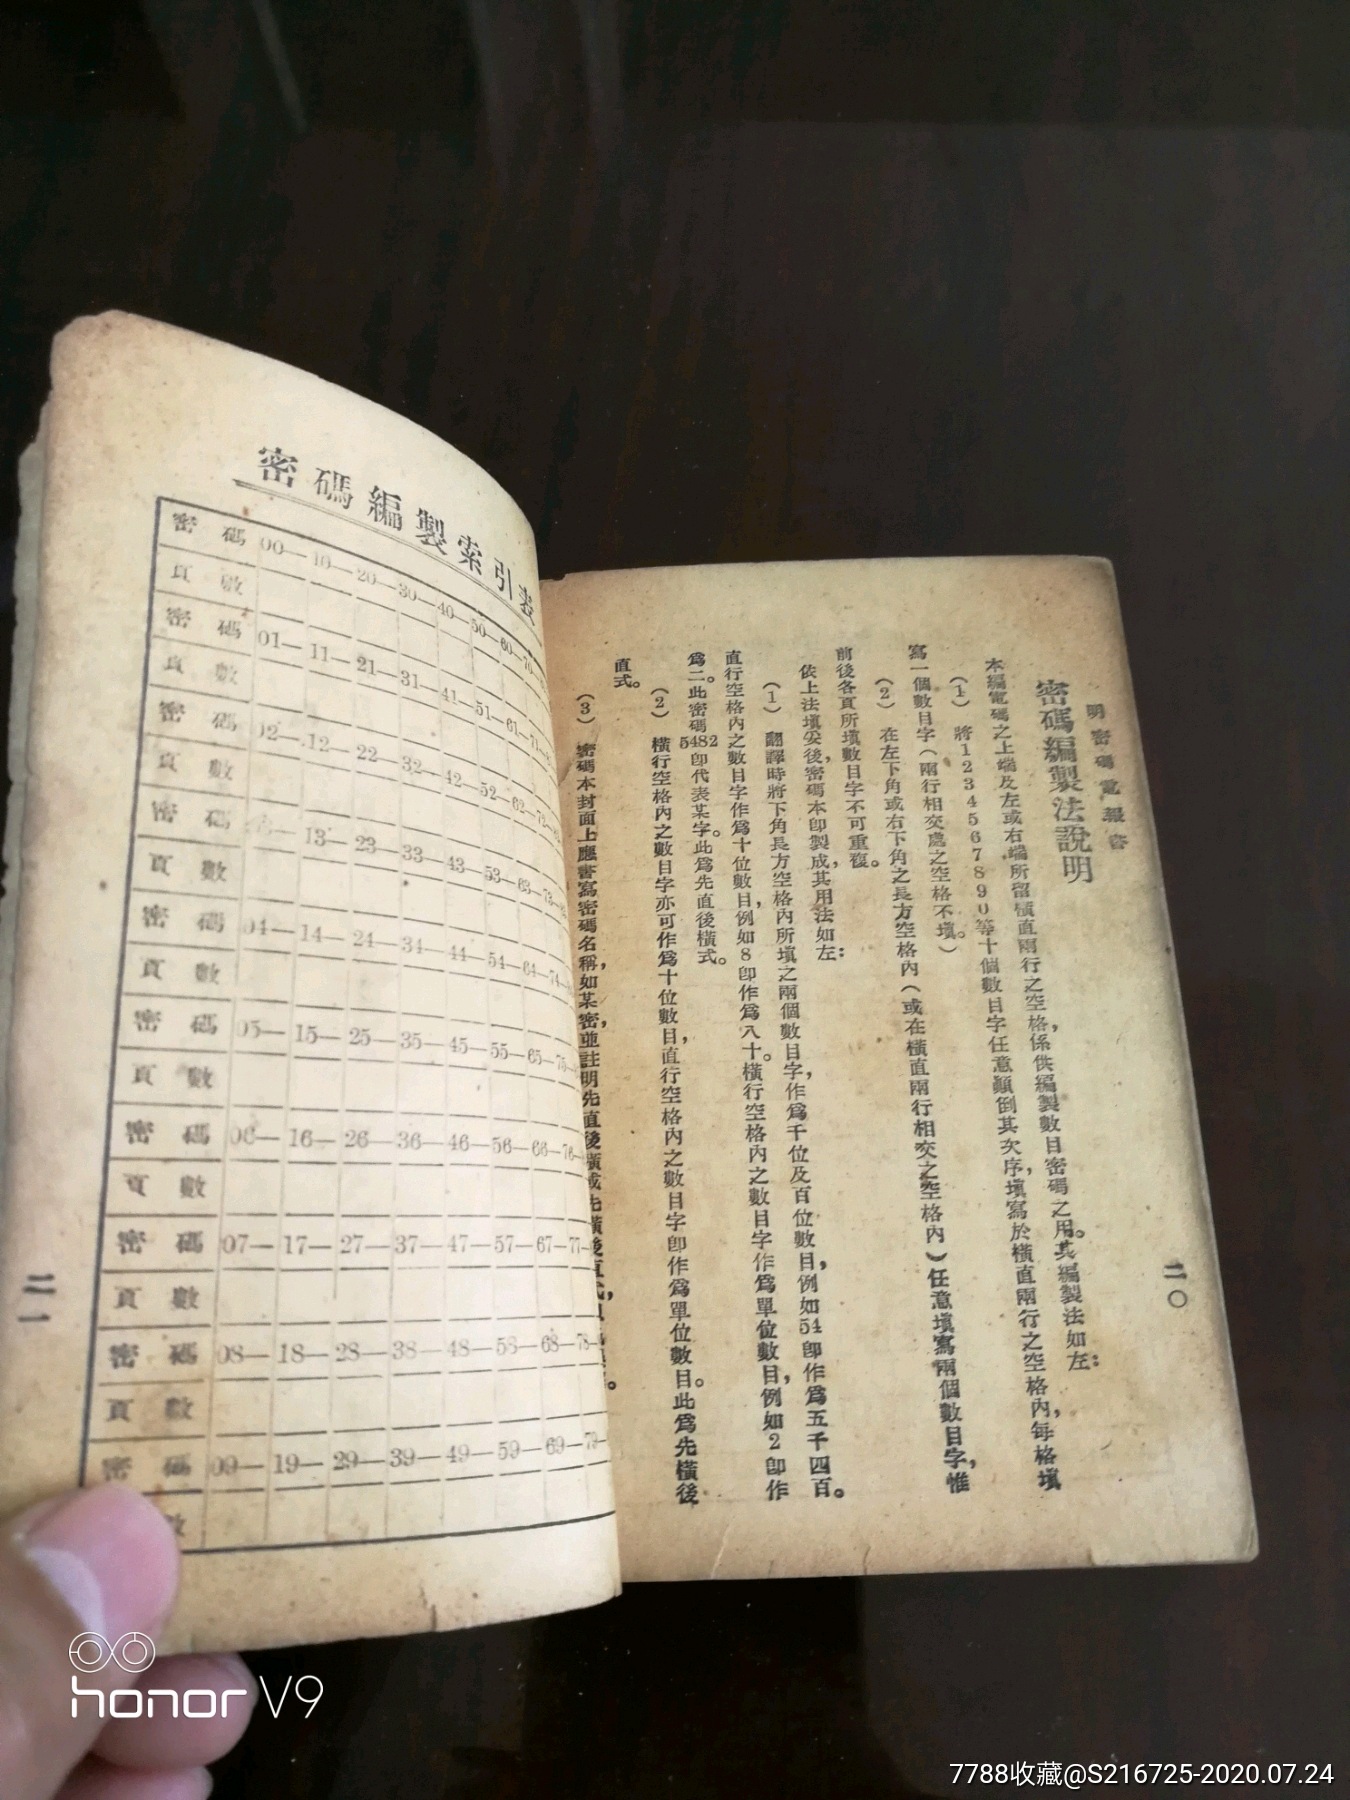 明密碼電報書
二〇
密碼編製法說明
本編電碼之上端及左或右端所留橫直兩行之空格，係供編製數目密碼之用。其編製法如左：
（1） 將1234567890等十個數目字任意顚倒其次序，塡寫於橫直兩行之空格內，每格塡
寫一個數目字（兩行相交處之空格不塡。）
（2） 在左下角或右下角之長方空格內（或在橫直兩行相交之空格內）任意塡寫兩個數目字，惟
前後各頁所塡數目字不可重複。
依上法塡妥後，密碼本卽製成，其用法如左：
（1） 翻譯時將下角長方空格內所塡之兩個數目字，作爲千位及百位數目，例如54卽作爲五千四百。
直行空格內之數目字作爲十位數目，例如8卽作爲八十。橫行空格內之數目字作爲單位數目，例如2卽作
爲二。此密碼5482卽代表某字。此爲先直後橫式。
（2） 橫行空格內之數目字亦可作爲十位數目，直行空格內之數目字卽作爲單位數目。此爲先橫後
直式。
（3） 密碼本封面上應書寫密碼名稱，如某密，並註明先直後橫或先橫後直式，
密碼編製索引表
密碼 00— 10— 20— 30— 40— 50— 60— 70—
頁數
密碼 01— 11— 21— 31— 41— 51— 61— 71—
頁數
密碼 02— 12— 22— 32— 42— 52— 62— 72—
頁數
密碼 03— 13— 23— 33— 43— 53— 63— 73—
頁數
密碼 04— 14— 24— 34— 44— 54— 64— 74—
頁數
密碼 05— 15— 25— 35— 45— 55— 65— 75—
頁數
密碼 06— 16— 26— 36— 46— 56— 66— 76—
頁數
密碼 07— 17— 27— 37— 47— 57— 67— 77—
頁數
密碼 08— 18— 28— 38— 48— 58— 68— 78—
頁數
密碼 09— 19— 29— 39— 49— 59— 69— 79—
數
二一
honor V9
7788收藏@S216725-2020.07.24